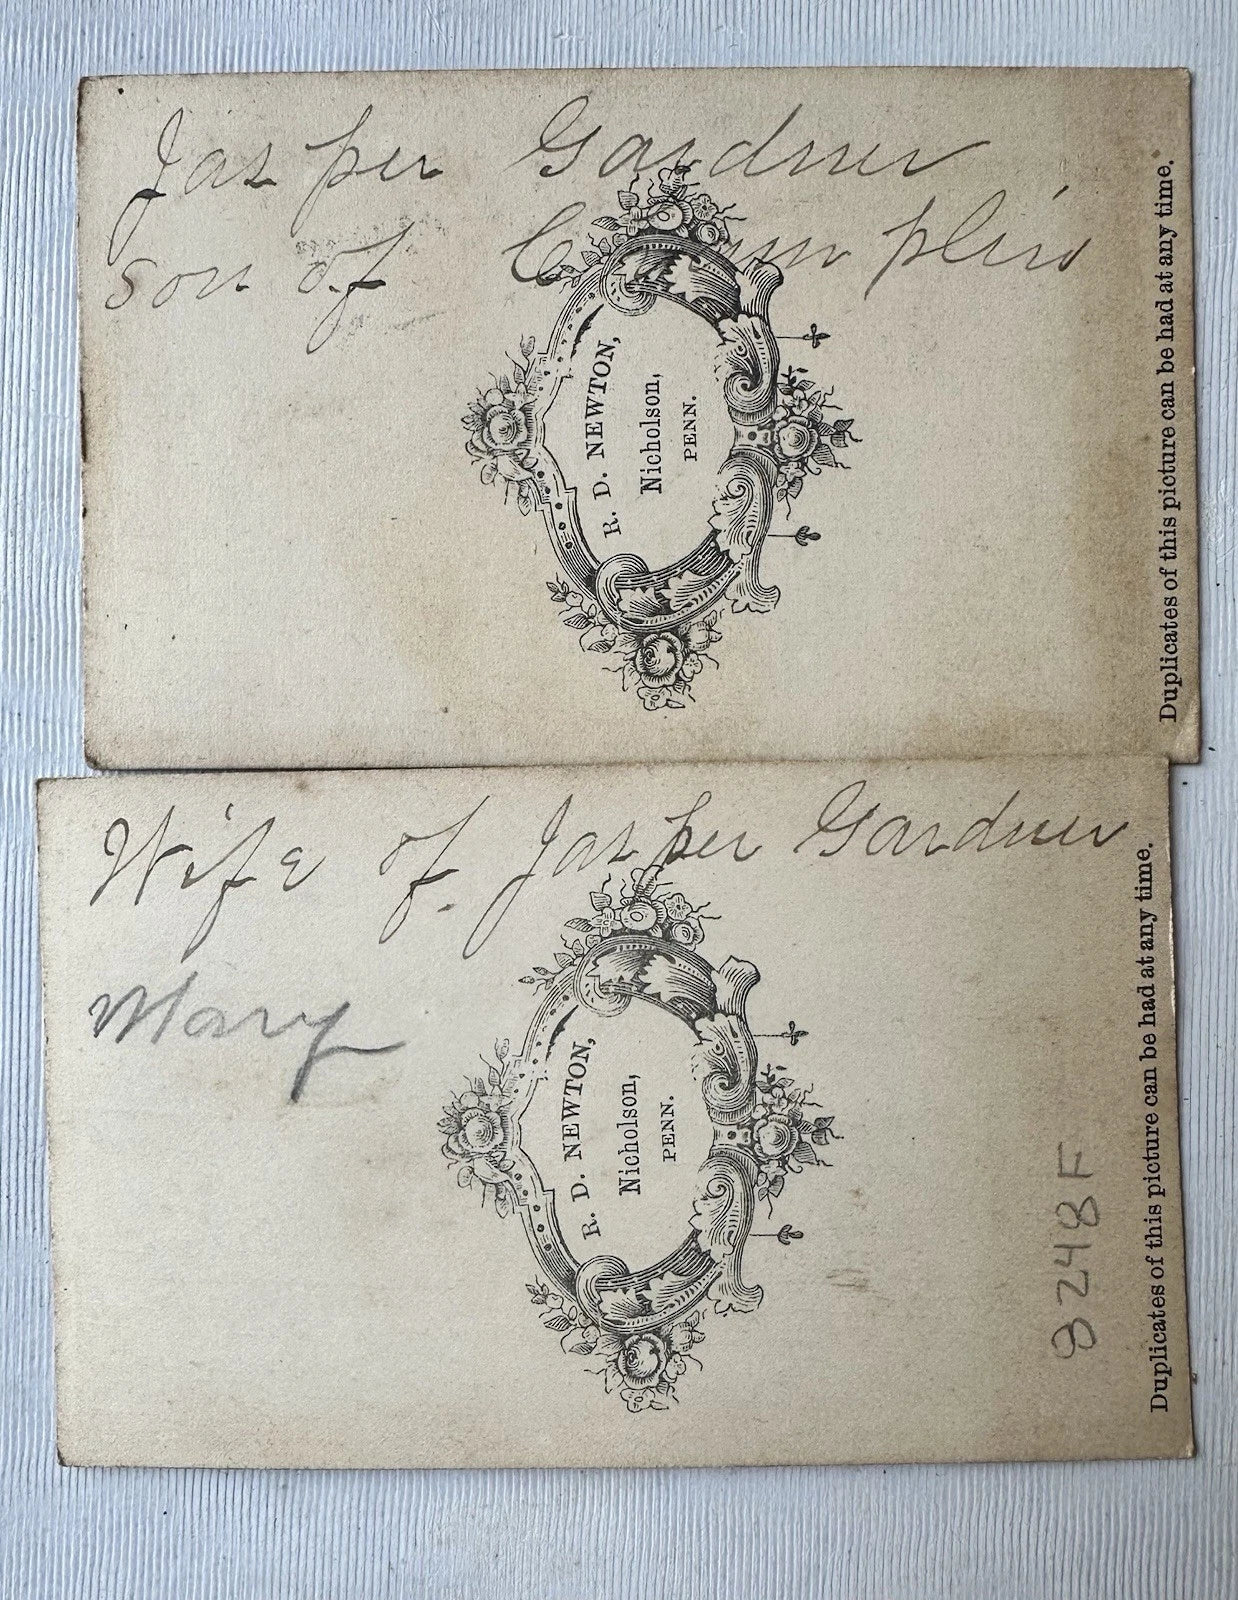 Jasper Gardner
son of
R. D. NEWTON,
Nicholson,
PENN.
Duplicates of this picture can be had at any time.
Wife of Jasper Gardner
Mary
R. D. NEWTON,
Nicholson,
PENN.
8248F
Duplicates of this picture can be had at any time.